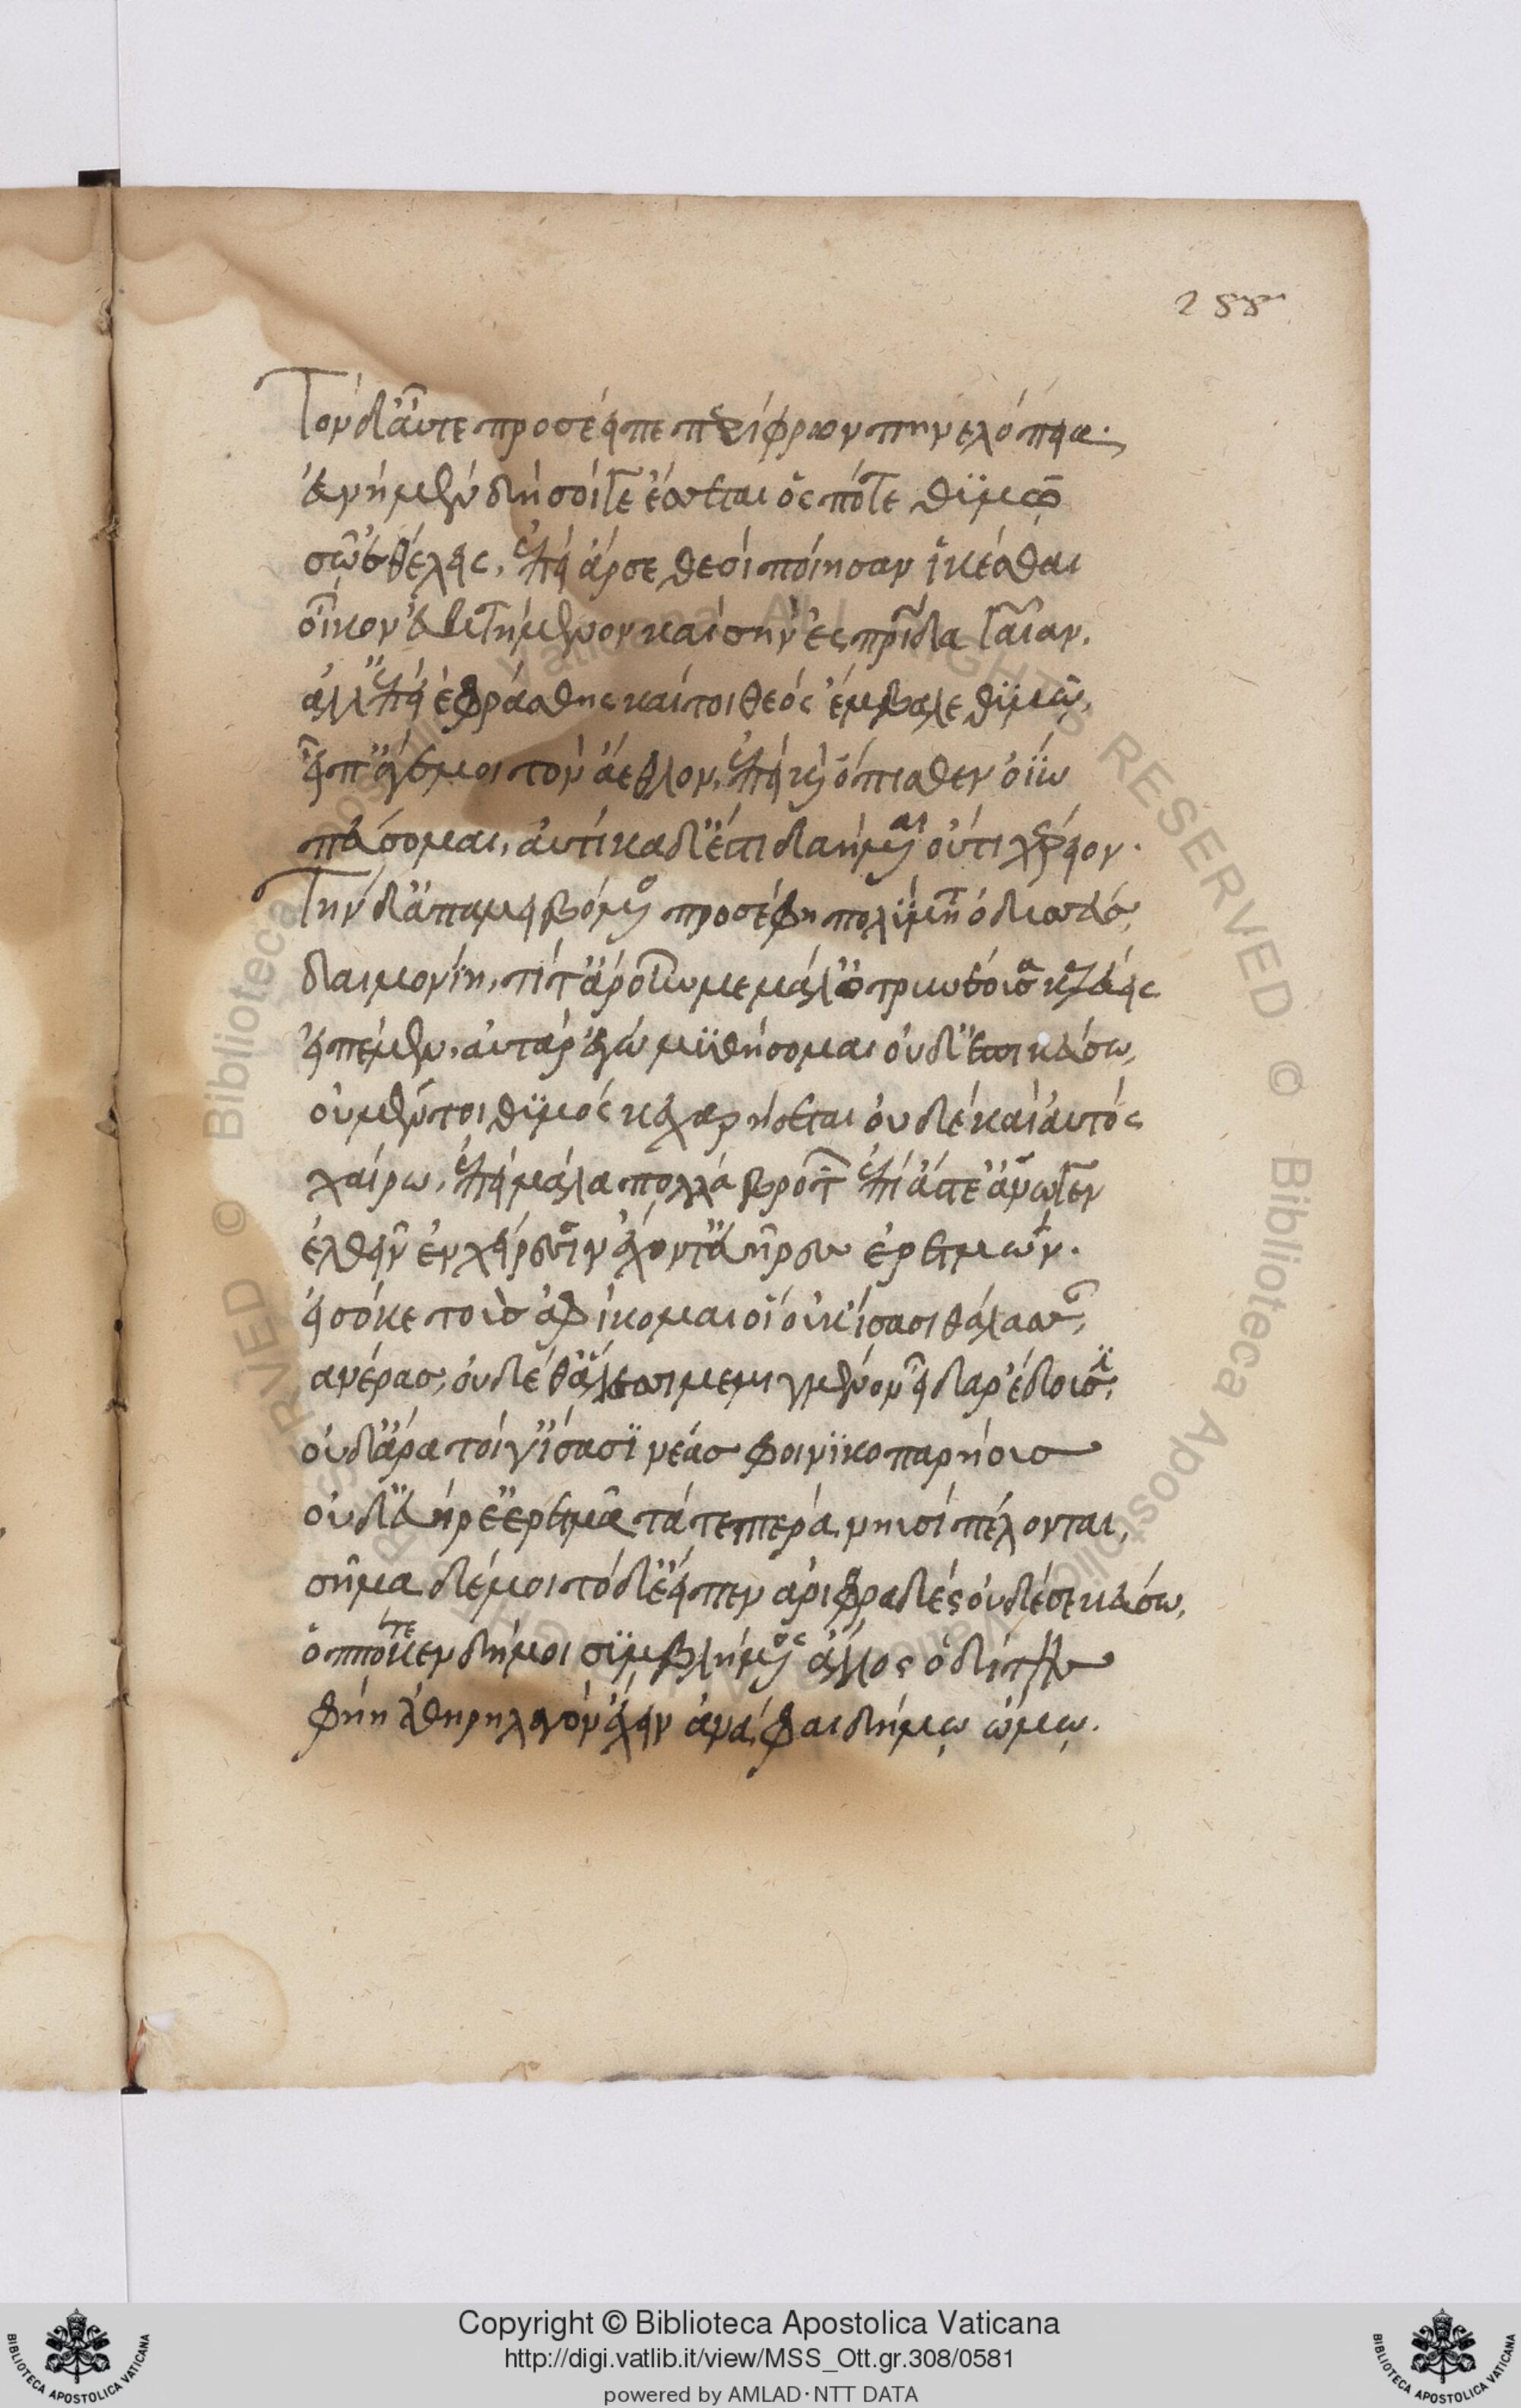 288
Τὸν δ' αὖτε προσέειπε περίφρων πηνελόπεια·
εὐνὴ μὲν δὴ σοί γε ἔσσεται ὁππότε θυμῷ
σῷ ἐθέλεις, ἐπεὶ ἄρ σε θεοὶ ποίησαν ἱκέσθαι
οἶκον ἐϋκτίμενον καὶ σὴν ἐς πατρίδα γαῖαν.
ἀλλ' ἐπεὶ ἐφράσθης καί τοι θεὸς ἔμβαλε θυμῷ,
εἴπ' ἄγε μοι τὸν ἄεθλον, ἐπεὶ καὶ ὄπισθεν ὀΐω
πεύσομαι, αὐτίκα δ' ἐστὶ δαήμεναι οὔτι χέρειον.
Τὴν δ' ἀπαμειβόμενος προσέφη πολύμητις ὀδυσσεύς,
δαιμονίη, τί τ' ἄρ' αὖ με μάλ' ὀτρύνουσα κελεύεις
εἰπέμεν, αὐτὰρ ἐγὼ μυθήσομαι οὐδ' ἐπικεύσω,
οὐ μέν τοι θυμὸς κεχαρήσεται οὐδὲ καὶ αὐτὸς
χαίρω, ἐπεὶ μάλα πολλὰ βροτῶν ἐπὶ ἄστε' ἄνωγεν
ἐλθεῖν ἐν χείρεσσιν ἔχοντ' εὐῆρες ἐρετμὸν.
εἰσόκε τοὺς ἀφίκομαι οἳ οὐκ ἴσασι θάλασσαν,
ἀνέρας, οὐδέ θ' ἅλεσσι μεμιγμένον εἶδαρ ἔδουσιν,
οὐδ' ἄρα τοί γ' ἴσασι νέας φοινικοπαρήους
οὐδ' εὐήρε' ἐρετμὰ τά τε πτερὰ νηυσὶ πέλονται,
σῆμα δέ μοι τόδ' ἔειπεν ἀριφραδές οὐδέ σε κεύσω,
ὁππότε κεν δή μοι ξυμβλήμενος ἄλλος ὁδίτης
φήῃ ἀθηρηλοιγὸν ἔχειν ἀνὰ φαιδίμῳ ὤμῳ.
Copyright © Biblioteca Apostolica Vaticana
http://digi.vatlib.it/view/MSS_Ott.gr.308/0581
powered by AMLAD·NTT DATA